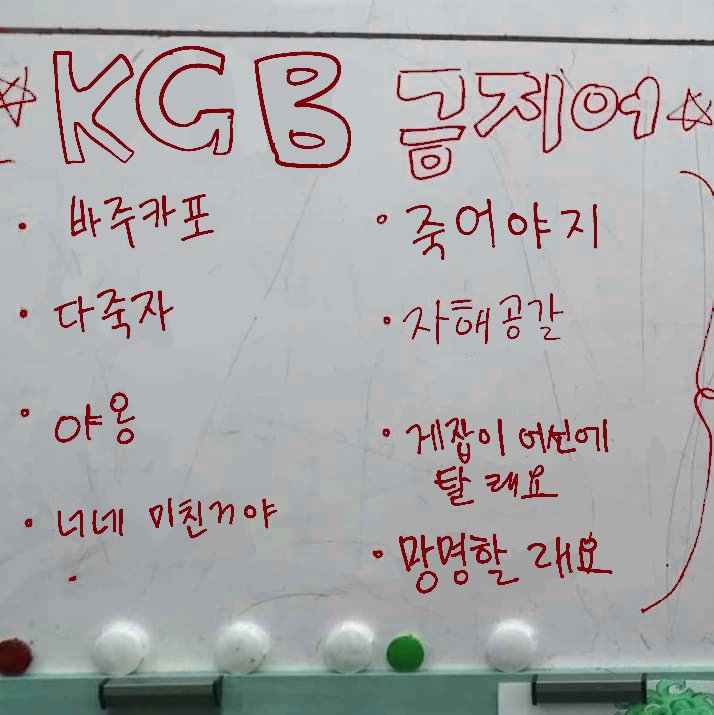 KGB 금지어
바주카포
다죽자
야옹
너네 미친거야
죽어야지
자해공갈
게잡이 어선에
탈래요
망명할래요